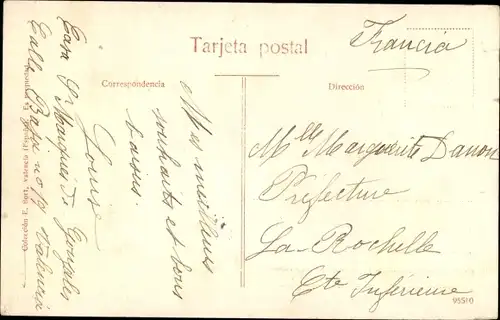 Tarjeta postal
Francia
Correspondencia
Dirección
Mes meilleurs
souhaits et bons
baisers
Louis
Casa Sr Marques de Gonzales
Calle Baja no 19 Valencia
Mlle Marguerite Danon
Préfecture
La-Rochelle
Cte Inférieure
Colección E. Valencia
95510